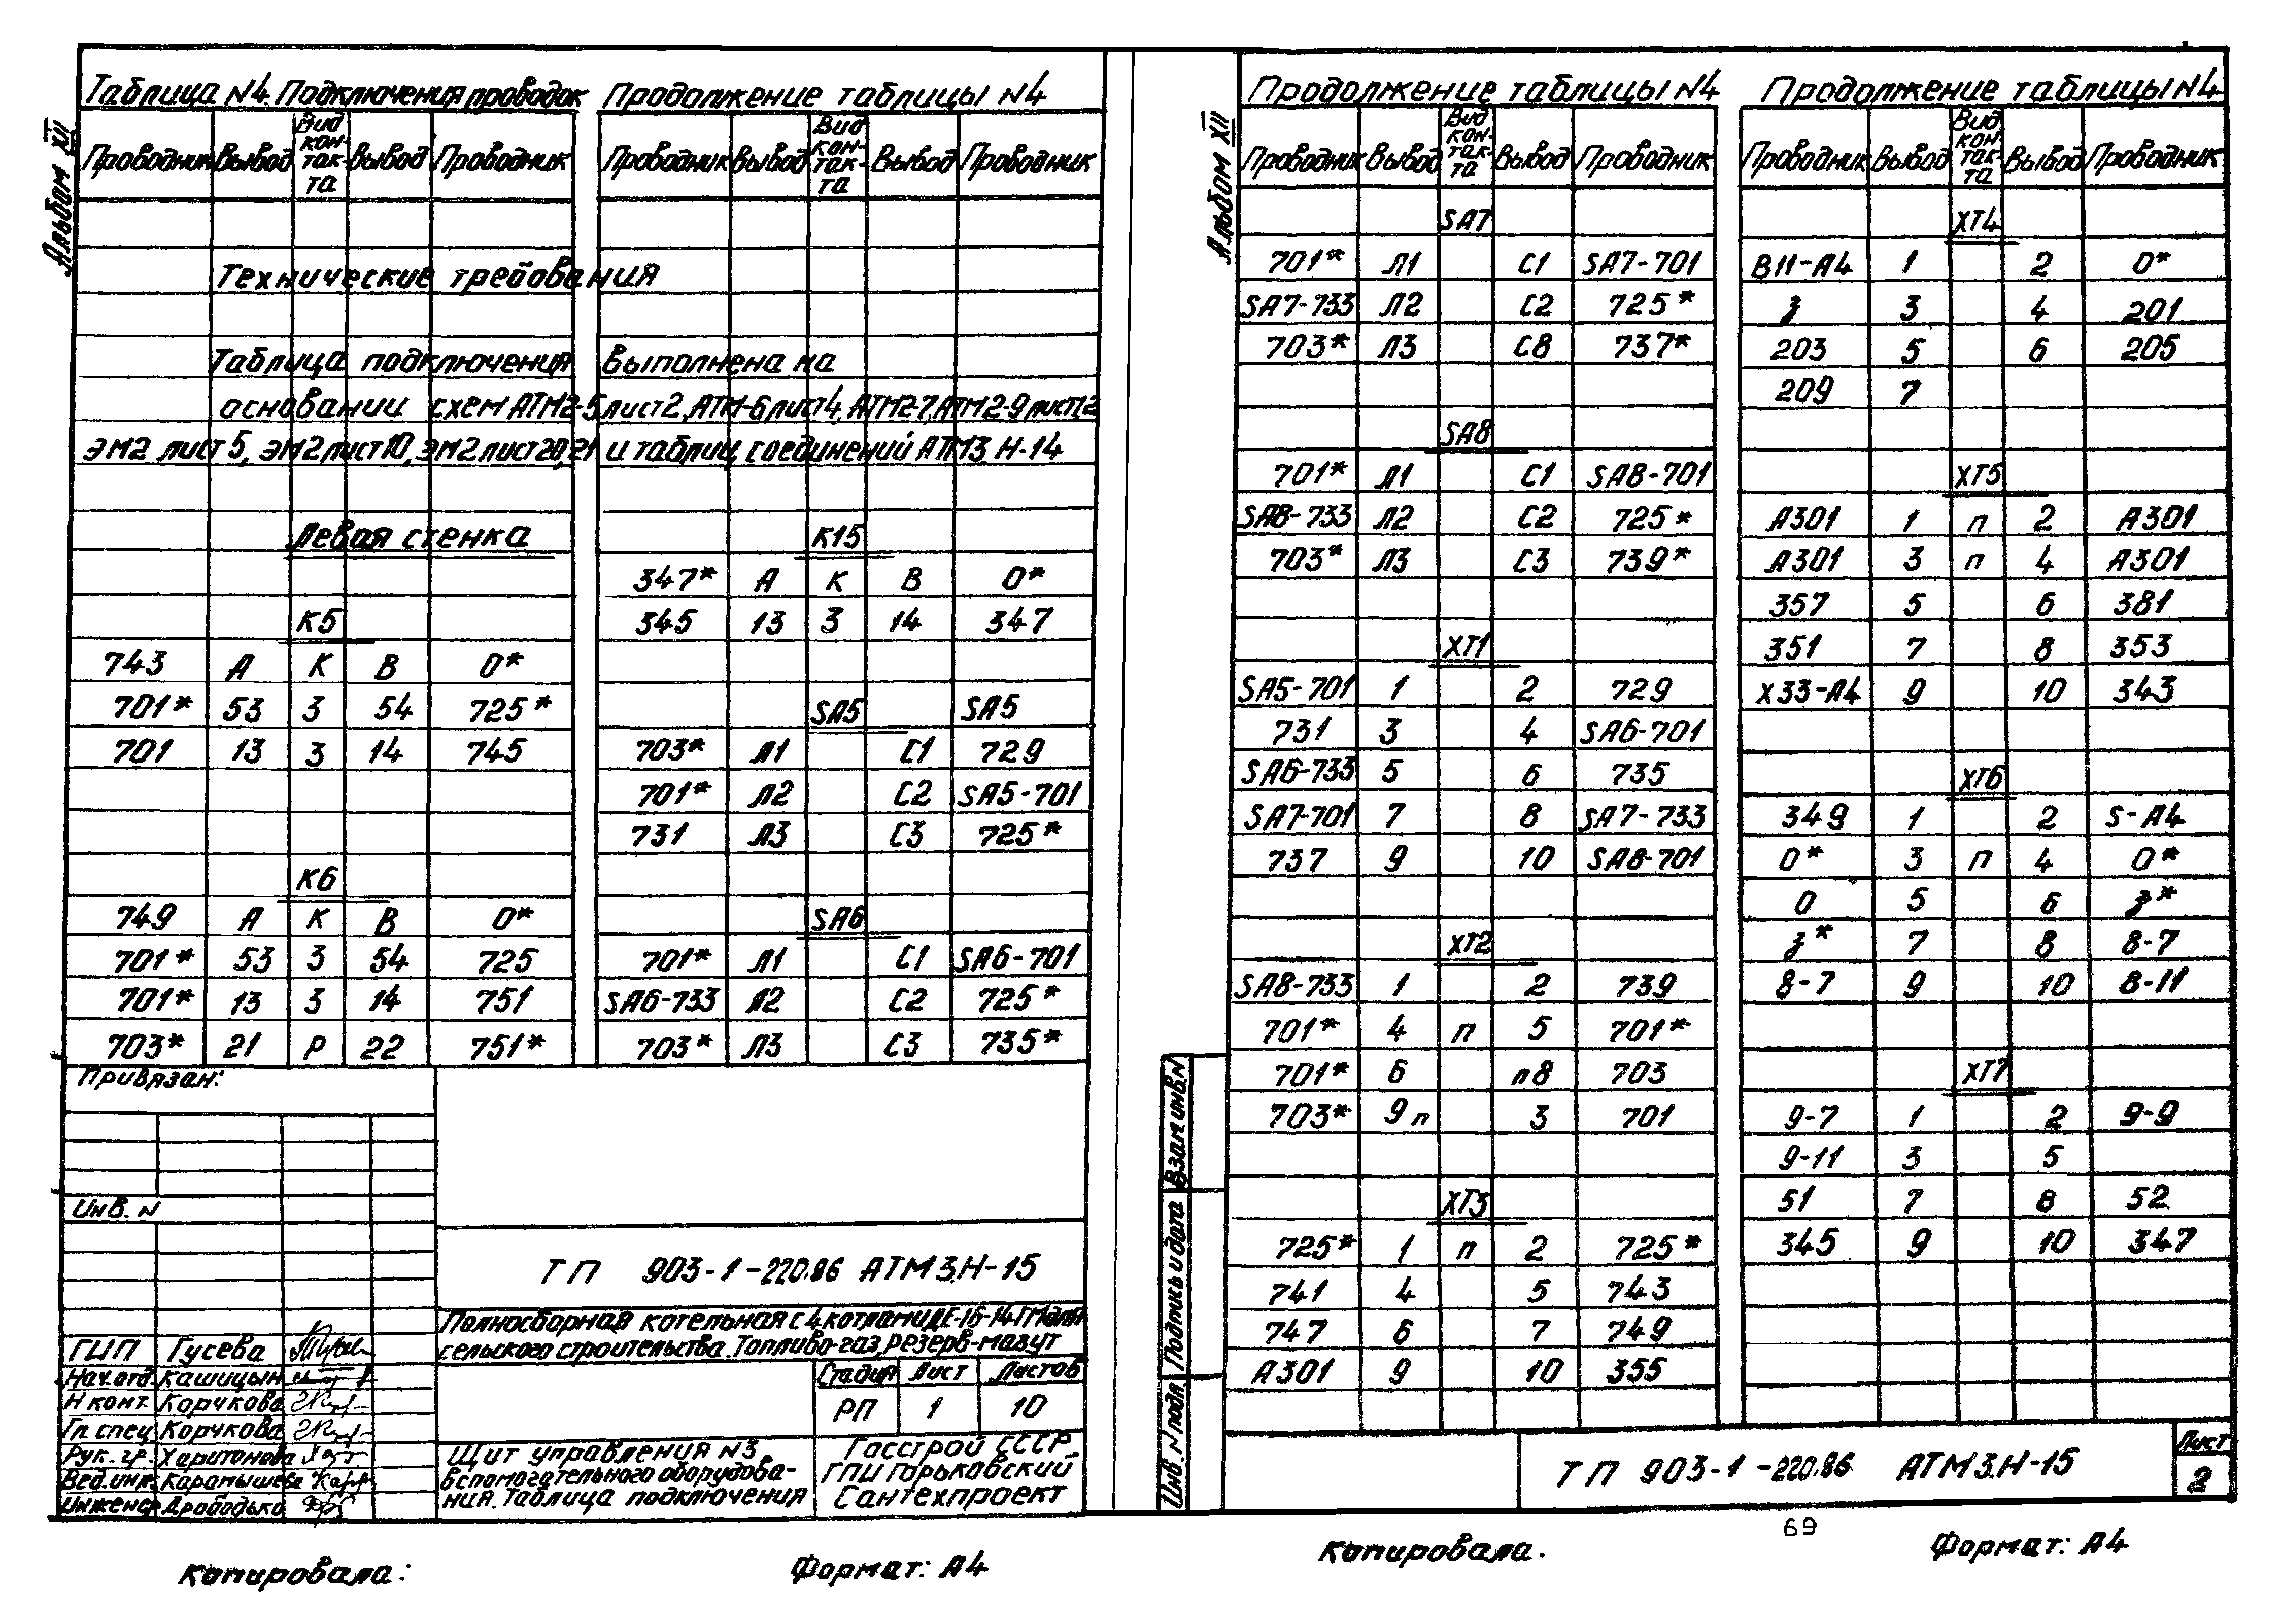 Альбом XII
Таблица N4. Подключения проводок
Проводник Вывод Вид контакта Вывод Проводник
Технические требования
Таблица подключения выполнена на
основании схем АТМ2-5 лист 2, АТМ-6 лист 4, АТМ2-7, АТМ2-9 лист 1,2
ЭМ2 лист 5, ЭМ2 лист 10, ЭМ2 лист 20,21 и таблиц соединений АТМ3.Н-14
Левая стенка
К5
743 А К В 0*
701* 53 З 54 725*
701 13 З 14 745
К6
749 А К В 0*
701* 53 З 54 725
701* 13 З 14 751
703* 21 Р 22 751*
Продолжение таблицы N4
Проводник Вывод Вид контакта Вывод Проводник
К15
347* А К В 0*
345 13 З 14 347
SA5 SA5
703* Л1 С1 729
701* Л2 С2 SA5-701
731 Л3 С3 725*
SA6
701* Л1 С1 SA6-701
SA6-733 Л2 С2 725*
703* Л3 С3 735*
Привязан:
Инв. N
ТП 903-1-220.86 АТМ3.Н-15
Полносборная котельная с 4 котлами ДЕ-16-14ГМ для
сельского строительства. Топливо-газ, резерв-мазут
Стадия Лист Листов
РП 1 10
ГИП Гусева
Нач.отд. Кашицын
Н конт. Корчкова
Гл. спец. Корчкова
Рук. гр. Харитонова
Вед.инж. Карамышева
Инженер Дрободько
Щит управления N3
вспомогательного оборудова-
ния. Таблица подключения
Госстрой СССР
ГПИ Горьковский
Сантехпроект
Копировала:
Формат: А4
Альбом XII
Продолжение таблицы N4
Проводник Вывод Вид контакта Вывод Проводник
SA7
701* Л1 С1 SA7-701
SA7-733 Л2 С2 725*
703* Л3 С8 737*
SA8
701* Л1 С1 SA8-701
SA8-733 Л2 С2 725*
703* Л3 С3 739*
XT1
SA5-701 1 2 729
731 3 4 SA6-701
SA6-733 5 6 735
SA7-701 7 8 SA7-733
737 9 10 SA8-701
XT2
SA8-733 1 2 739
701* 4 п 5 701*
701* 6 п8 703
703* 9п 3 701
XT3
725* 1 п 2 725*
741 4 5 743
747 6 7 749
А301 9 10 355
Продолжение таблицы N4
Проводник Вывод Вид контакта Вывод Проводник
XT4
В11-А4 1 2 0*
3 4 201
203 5 6 205
209 7
XT5
А301 1 п 2 А301
А301 3 п 4 А301
357 5 6 381
351 7 8 353
Х33-А4 9 10 343
XT6
349 1 2 S-А4
0* 3 п 4 0*
0 5 6
7 8 8-7
8-7 9 10 8-11
XT7
9-7 1 2 9-9
9-11 3 5
51 7 8 52
345 9 10 347
Взам инв.N
Подпись и дата
Инв. N подл.
ТП 903-1-220.86 АТМ3.Н-15
Лист
2
69
Копировала:
Формат: А4